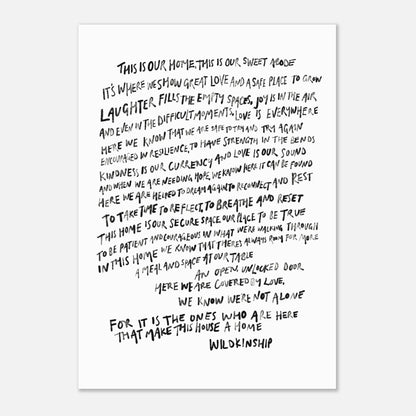 THIS IS OUR HOME, THIS IS OUR SWEET ABODE
IT'S WHERE WE SHOW GREAT LOVE AND A SAFE PLACE TO GROW
LAUGHTER FILLS THE EMPTY SPACES, JOY IS IN THE AIR
AND EVEN IN THE DIFFICULT MOMENTS LOVE IS EVERYWHERE
HERE WE KNOW THAT WE ARE SAFE TO TRY AND TRY AGAIN
ENCOURAGED IN RESILIENCE, TO HAVE STRENGTH IN THE BENDS
KINDNESS IS OUR CURRENCY AND LOVE IS OUR SOUND
AND WHEN WE ARE NEEDING HOPE, WE KNOW HERE IT CAN BE FOUND
HERE WE ARE HELPED TO DREAM AGAIN TO RECONNECT AND REST
TO TAKE TIME TO REFLECT, TO BREATHE AND RESET
THIS HOME IS OUR SECURE SPACE, OUR PLACE TO BE TRUE
TO BE PATIENT AND COURAGEOUS IN WHAT WE'RE WALKING THROUGH
IN THIS HOME WE KNOW THAT THERE'S ALWAYS ROOM FOR MORE
A MEAL AND SPACE AT OUR TABLE
AN OPEN UNLOCKED DOOR
HERE WE ARE COVERED BY LOVE,
WE KNOW WE'RE NOT ALONE
FOR IT IS THE ONES WHO ARE HERE
THAT MAKE THIS HOUSE A HOME
WILDKINSHIP